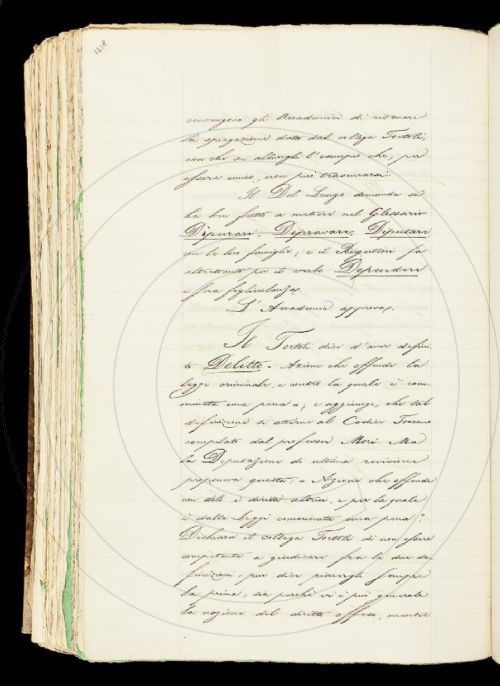 1218
gli Accademici di ritenere
la spiegazione data dal collega Tortoli,
con che si allunghi l'esempio che, per
essere unico, non può trascurarsi.
Il Del Lungo domanda se
ha ben fatto a mettere nel Glossario
Dipurare, Dipravare, Diputare
per le loro famiglie; e il Rigutini fa
altrettanto per il verbo Dependere
e sua figliolanza.
L'Accademia approva.
Il Tortoli dice d'aver defini-
to Delitto = Azione che offende la
legge criminale, e contro la quale è com-
minata una pena =; e aggiunge, che tal
definizione si attiene al Codice Toscano
compilato dal professor Mori. Ma
la Deputazione di ultima revisione
proponeva questa: = Azione che offende
con dolo i diritti altrui, e per la quale
è dalle Leggi comminata una pena =.
Dichiara il collega Tortoli di non essere
competente a giudicare fra le due de-
finizioni; pur dice piacergli sempre
la prima, sia perchè vi è più generale
la nozione del diritto offeso, mentre